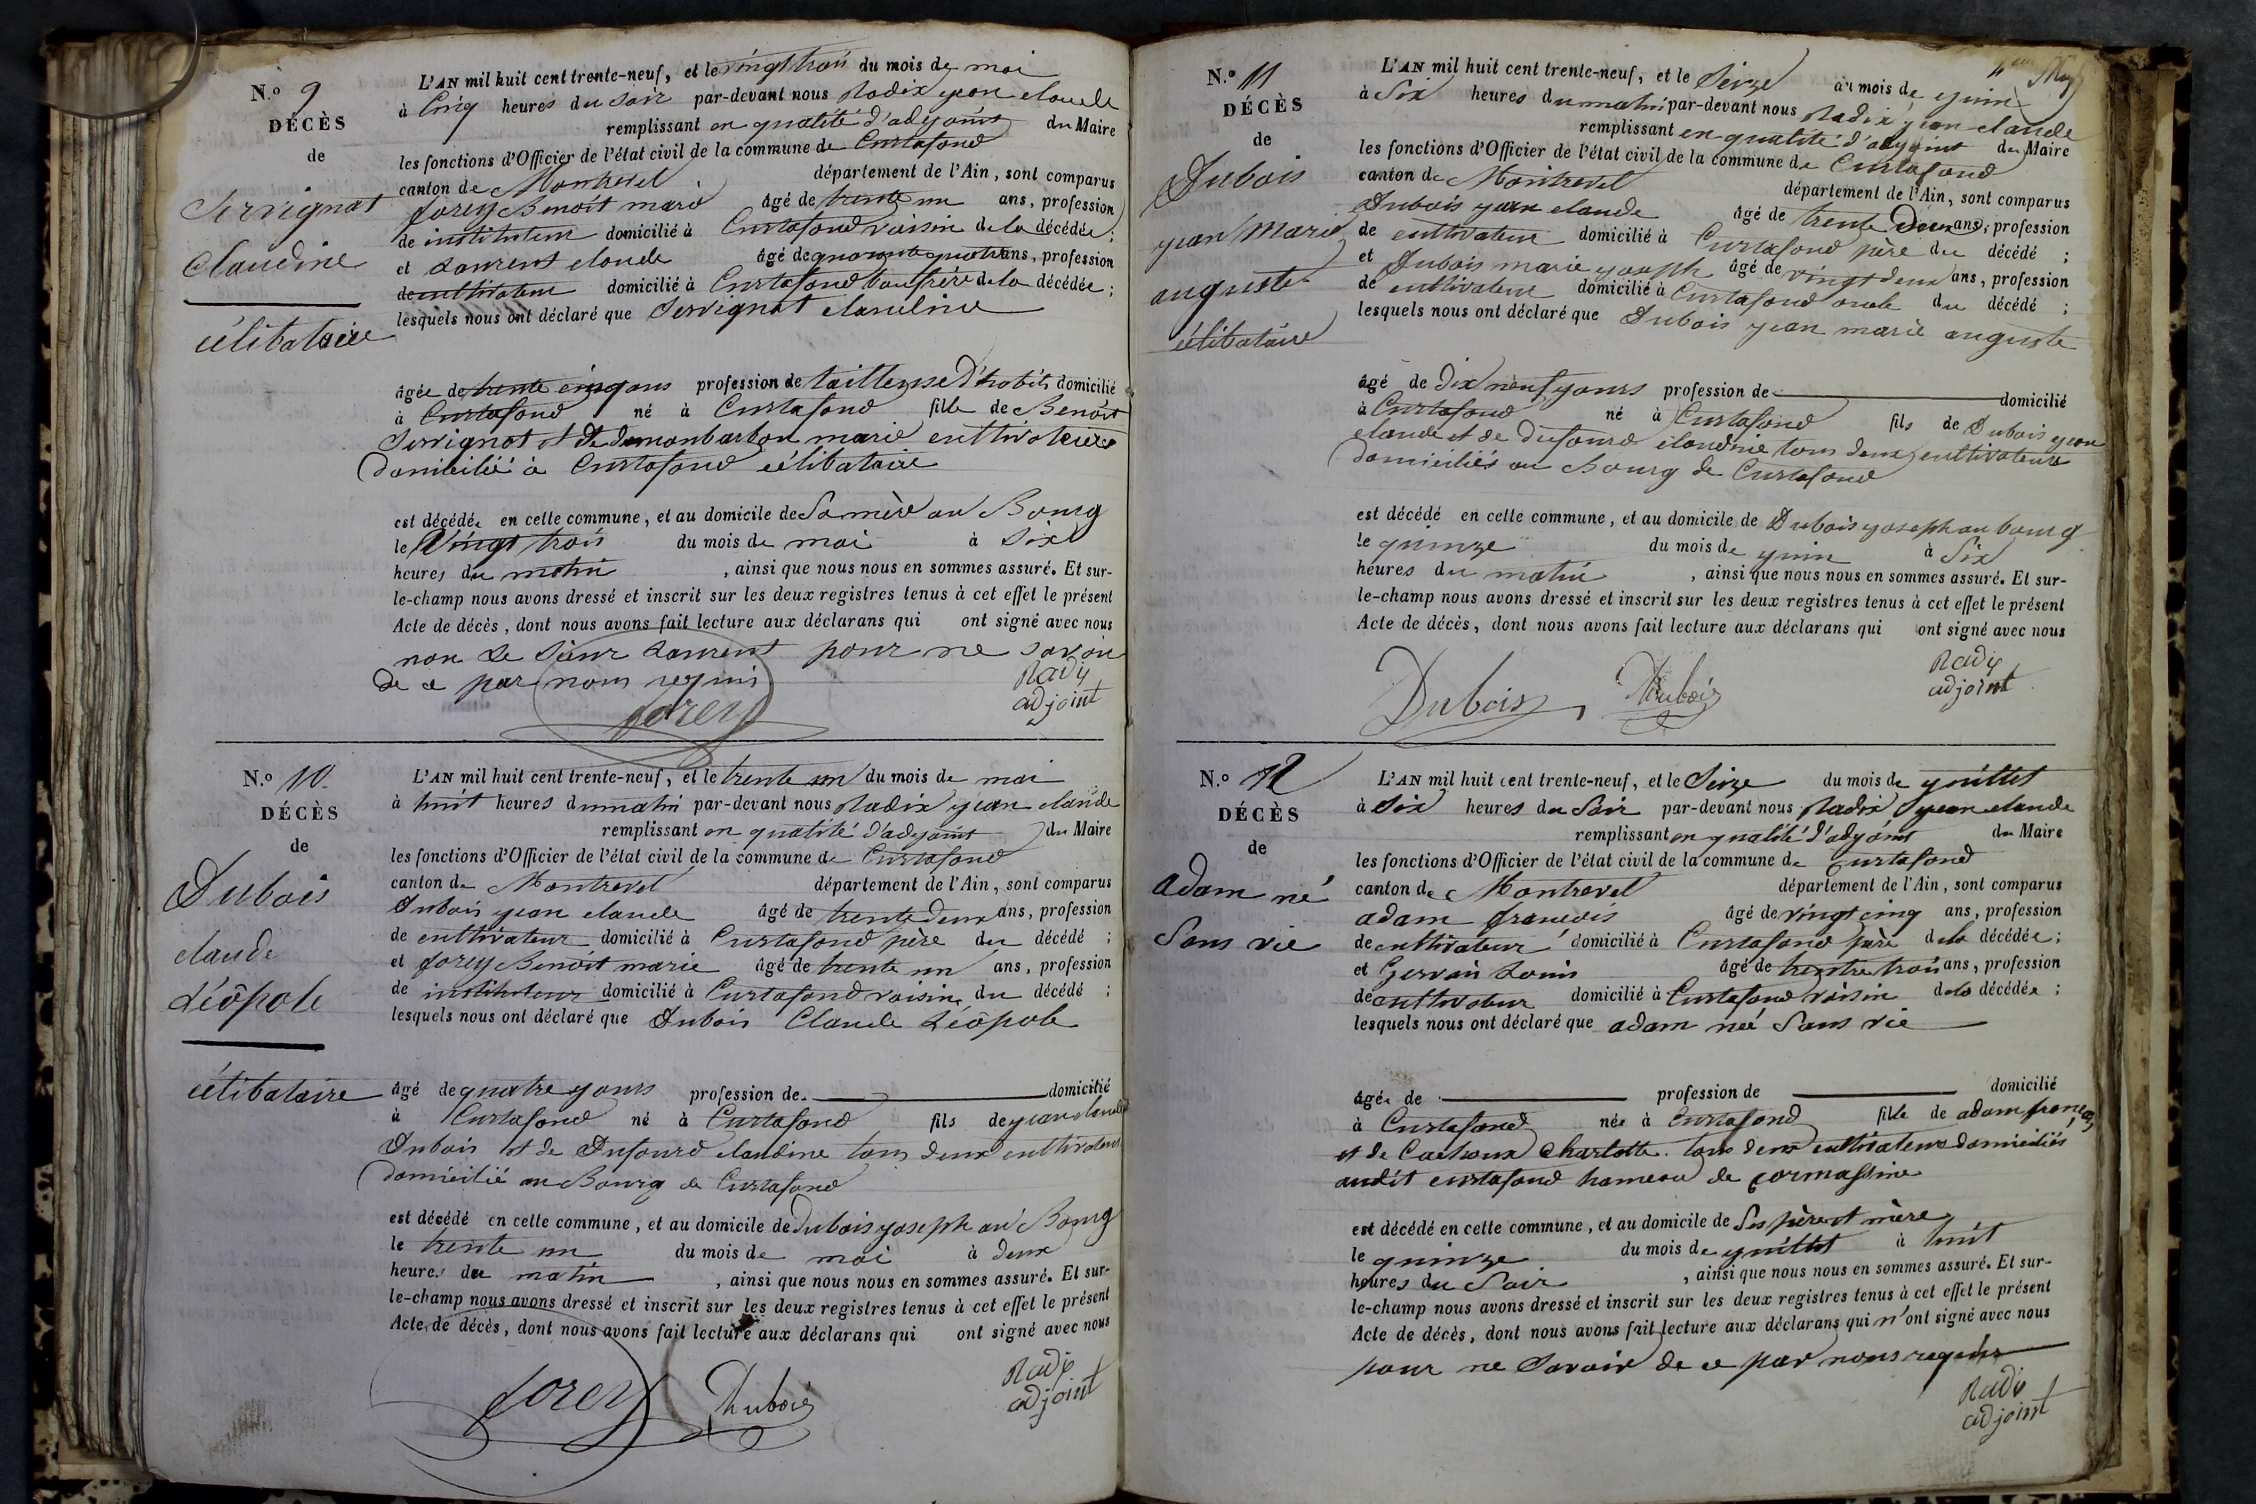 N.º 9
DÉCÈS
de
Servignat
Claudine
célibataire
L'AN mil huit cent trente-neuf, et le vingt trois du mois de mai
à Cinq heures du soir par-devant nous Radix jean claude
remplissant en qualité d'adjoint du Maire
les fonctions d'Officier de l'état civil de la commune de Curtafond
canton de Montrevel département de l'Ain, sont comparus
forey Benoît marie âgé de trente un ans, profession
de instituteur domicilié à Curtafond voisin de la décédée ;
et Laurent claude âgé de quarante quatre ans, profession
de cultivateur domicilié à Curtafond beaufrère de la décédée ;
lesquels nous ont déclaré que Servignat claudine
âgée de trente cinq ans profession de tailleuse d'habits domicilié
à Curtafond né à Curtafond fille de Benoit
Servignat et de dumonbarbon marie cultivateurs
domicilié à Curtafond célibataire
est décédée en cette commune, et au domicile de Sa mère au Bourg
le Vingt trois du mois de mai à Six
heures du matin , ainsi que nous nous en sommes assuré. Et sur-
le-champ nous avons dressé et inscrit sur les deux registres tenus à cet effet le présent
Acte de décès, dont nous avons fait lecture aux déclarans qui ont signé avec nous
non Le Sieur Laurent pour ne savoir
de ce par nous requis
forey
Radix
adjoint
N.º 10
DÉCÈS
de
Dubois
claude
Léôpole
célibataire
L'AN mil huit cent trente-neuf, et le trente un du mois de mai
à huit heures du matin par-devant nous Radix jean claude
remplissant en qualité d'adjoint du Maire
les fonctions d'Officier de l'état civil de la commune de Curtafond
canton de Montrevel département de l'Ain, sont comparus
Dubois jean claude âgé de trente deux ans, profession
de cultivateur domicilié à Curtafond père du décédé ;
et forey Benoît marie âgé de trente un ans, profession
de instituteur domicilié à Curtafond voisin du décédé ;
lesquels nous ont déclaré que Dubois Claude Léôpole
âgé de quatre jours profession de domicilié
à Curtafond né à Curtafond fils de jean claude
Dubois et de Dufourd claudine tous deux cultivateurs
domicilié au Bourg de Curtafond
est décédé en cette commune, et au domicile de Dubois joseph au Bourg
le trente un du mois de mai à deux
heures du matin , ainsi que nous nous en sommes assuré. Et sur-
le-champ nous avons dressé et inscrit sur les deux registres tenus à cet effet le présent
Acte de décès, dont nous avons fait lecture aux déclarans qui ont signé avec nous
forey Dubois
Radix
adjoint
N.º 11
DÉCÈS
de
Dubois
jean Marie
auguste
célibataire
L'AN mil huit cent trente-neuf, et le Seize du mois de juin
à Six heures du matin par-devant nous Radix jean claude
remplissant en qualité d'adjoint du Maire
les fonctions d'Officier de l'état civil de la commune de Curtafond
canton de Montrevel département de l'Ain, sont comparus
Dubois jean claude âgé de trente Deux ans, profession
de cultivateur domicilié à Curtafond père du décédé ;
et Dubois marie joseph âgé de vingt deux ans, profession
de cultivateur domicilié à Curtafond oncle du décédé ;
lesquels nous ont déclaré que Dubois jean marie auguste
âgé de Dix neuf jours profession de domicilié
à Curtafond né à Curtafond fils de Dubois jean
claude et de Dufourd claudine tous deux cultivateurs
domiciliés au Bourg de Curtafond
est décédé en cette commune, et au domicile de Dubois joseph au bourg
le quinze du mois de juin à Six
heures du matin , ainsi que nous nous en sommes assuré. Et sur-
le-champ nous avons dressé et inscrit sur les deux registres tenus à cet effet le présent
Acte de décès, dont nous avons fait lecture aux déclarans qui ont signé avec nous
Dubois Dubois
Radix
adjoint
N.º 12
DÉCÈS
de
adam né
Sans vie
L'AN mil huit cent trente-neuf, et le Seize du mois de juillet
à Six heures du Soir par-devant nous Radix jean claude
remplissant en qualité d'adjoint du Maire
les fonctions d'Officier de l'état civil de la commune de Curtafond
canton de Montrevel département de l'Ain, sont comparus
adam françois âgé de vingt cinq ans, profession
de cultivateur domicilié à Curtafond père de la décédée ;
et Gervais Louis âgé de trentre trois ans, profession
de cultivateur domicilié à Curtafond voisin de la décédée ;
lesquels nous ont déclaré que adam neé Sans vie
âgée de profession de domicilié
à Curtafond née à Curtafond fille de adam françois
et de Cachoux Charlotte tous deux cultivateurs domiciliés
audit curtafond hameau de cormassine
est décédé en cette commune, et au domicile de Ses père et mère
le quinze du mois de juillet à huit
heures du Soir , ainsi que nous nous en sommes assuré. Et sur-
le-champ nous avons dressé et inscrit sur les deux registres tenus à cet effet le présent
Acte de décès, dont nous avons fait lecture aux déclarans qui n'ont signé avec nous
pour ne Savoir de ce par nous requis
Radix
adjoint